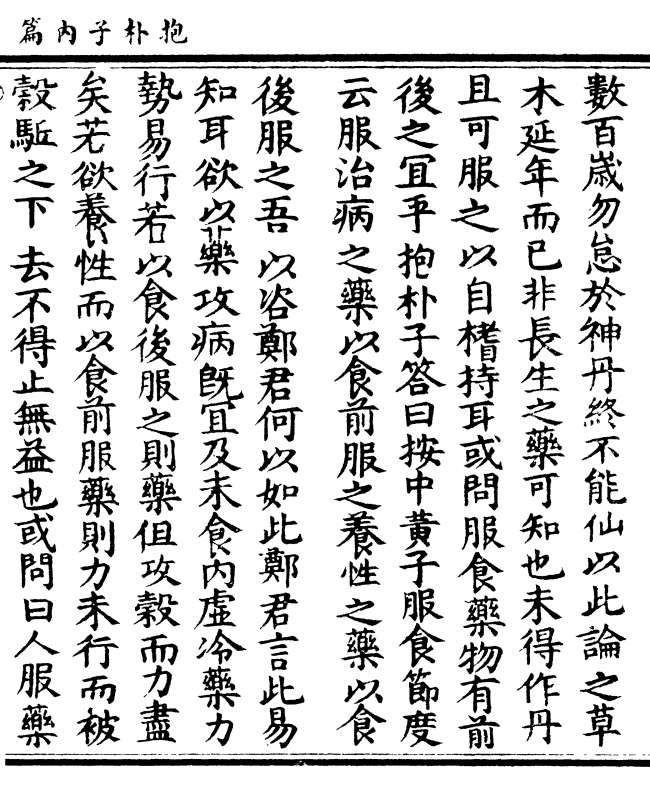 抱朴子内篇
數百歲勿怠於神丹終不能仙以此論之草
木延年而已非長生之藥可知也未得作丹
且可服之以自榰持耳或問服食藥物有前
後之冝乎抱朴子答曰按中黃子服食節度
云服治病之藥以食前服之養性之藥以食
後服之吾以咨鄭君何以如此鄭君言此易
知耳欲以藥攻病既冝及未食内虛冷藥力
勢易行若以食後服之則藥但攻榖而力盡
矣若欲養性而以食前服藥則力未行而被
榖駈之下去不得止無益也或問曰人服藥